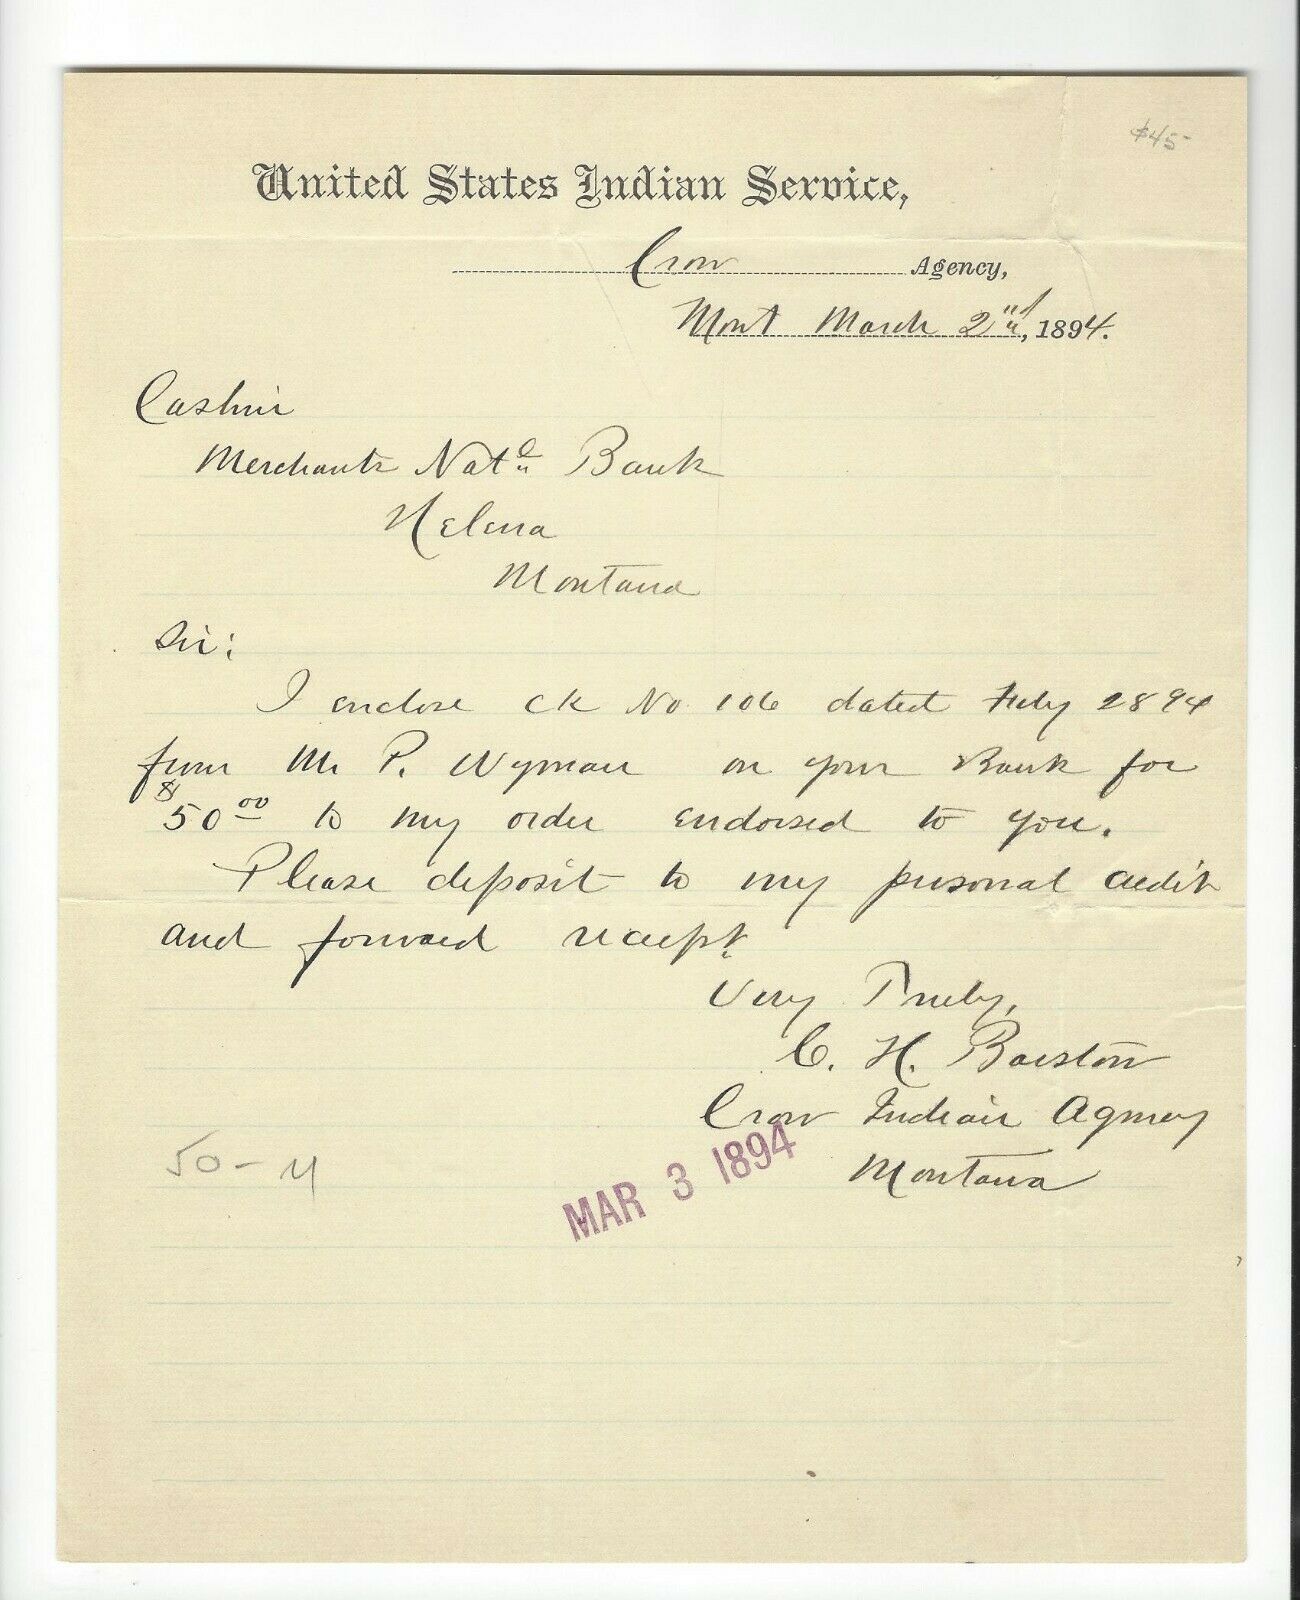 $45-
United States Indian Service,
Crow Agency,
Mont March 2nd, 1894.
Cashier
Merchants Natl Bank
Helena
Montana
Sir:
I enclose ck No 106 dated Feby 28 94
from M. P. Wyman on your Bank for
$50 00 to my order endorsed to you.
Please deposit to my personal credit
and forward receipt.
Very Truly,
C. H. Barstow
Crow Indian Agency
Montana
50 -
MAR 3 1894